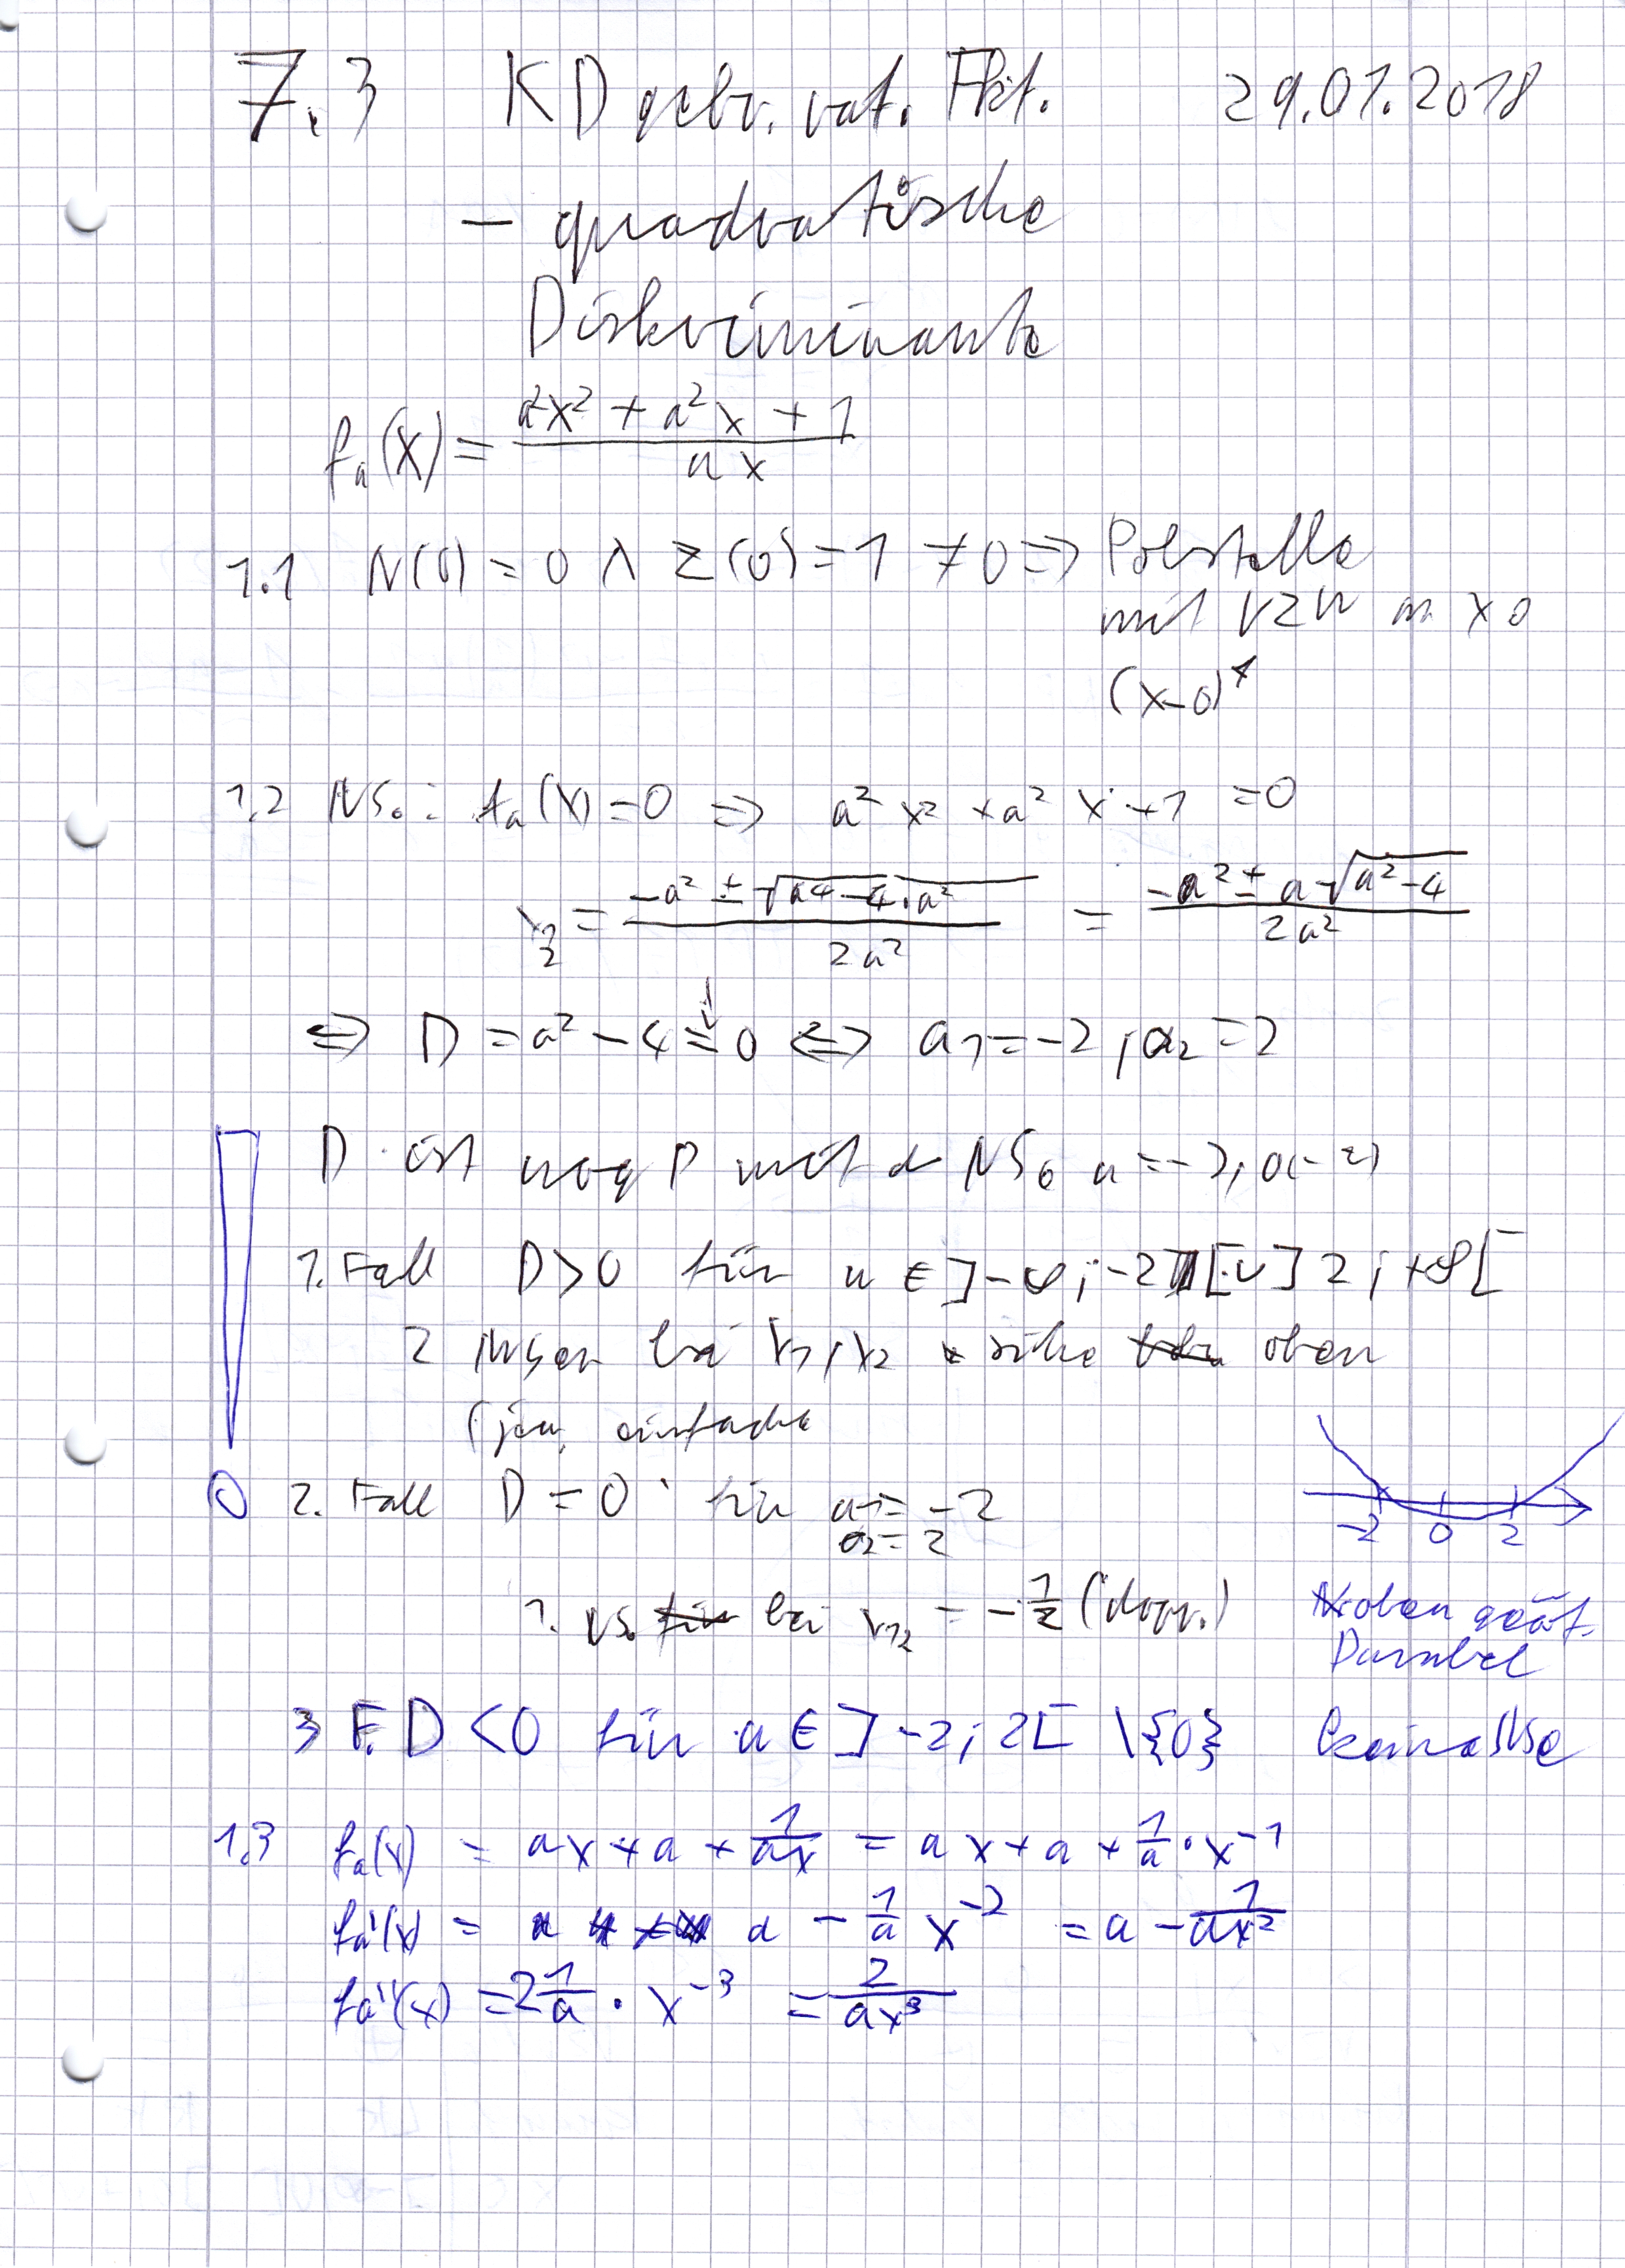 7.3 KD gebr. rat. Fkt. 29.01.2018
- quadratische
Diskriminante
fₐ(x) = (a²x² + a²x + 1) / (ax)
1.1 N(0) = 0 ∧ Z(0) = 1 ≠ 0 ⇒ Polstelle
mit VZW x 0
(x-0)¹
1.2 NS.: fₐ(x) = 0 ⇒ a² x² + a² x + 1 = 0
x₁/₂ = (-a² ± √(a4 - 4·a²)) / (2a²) = (-a² ± a √(a² - 4)) / (2a²)
⇔ D = a² - 4 = 0 ⇔ a₁ = -2 ; a₂ = 2
D ist mit d NS a =
1. Fall D > 0 für a ∈ ]-∞ ; -2[ ∪ ] 2 ; +∞[
2 NSen bei x₁, x₂ siehe oben
(jew. einfache
2. Fall D = 0 für a₁ = -2
a₂ = 2
-2 0 2
1. NS. bei x₁₂ = -1/2 (dopp.)
N. oben geöf.
Parabel
3 F. D < 0 für a ∈ ] -2 ; 2[ \{0} keine NSe
1.3 fₐ(x) = ax + a + 1/(ax) = ax + a + 1/a · x⁻¹
fₐ'(x) = a - 1/a x⁻² = a - 1/(ax²)
fₐ''(x) = 2 1/a · x⁻³ = 2/(ax³)